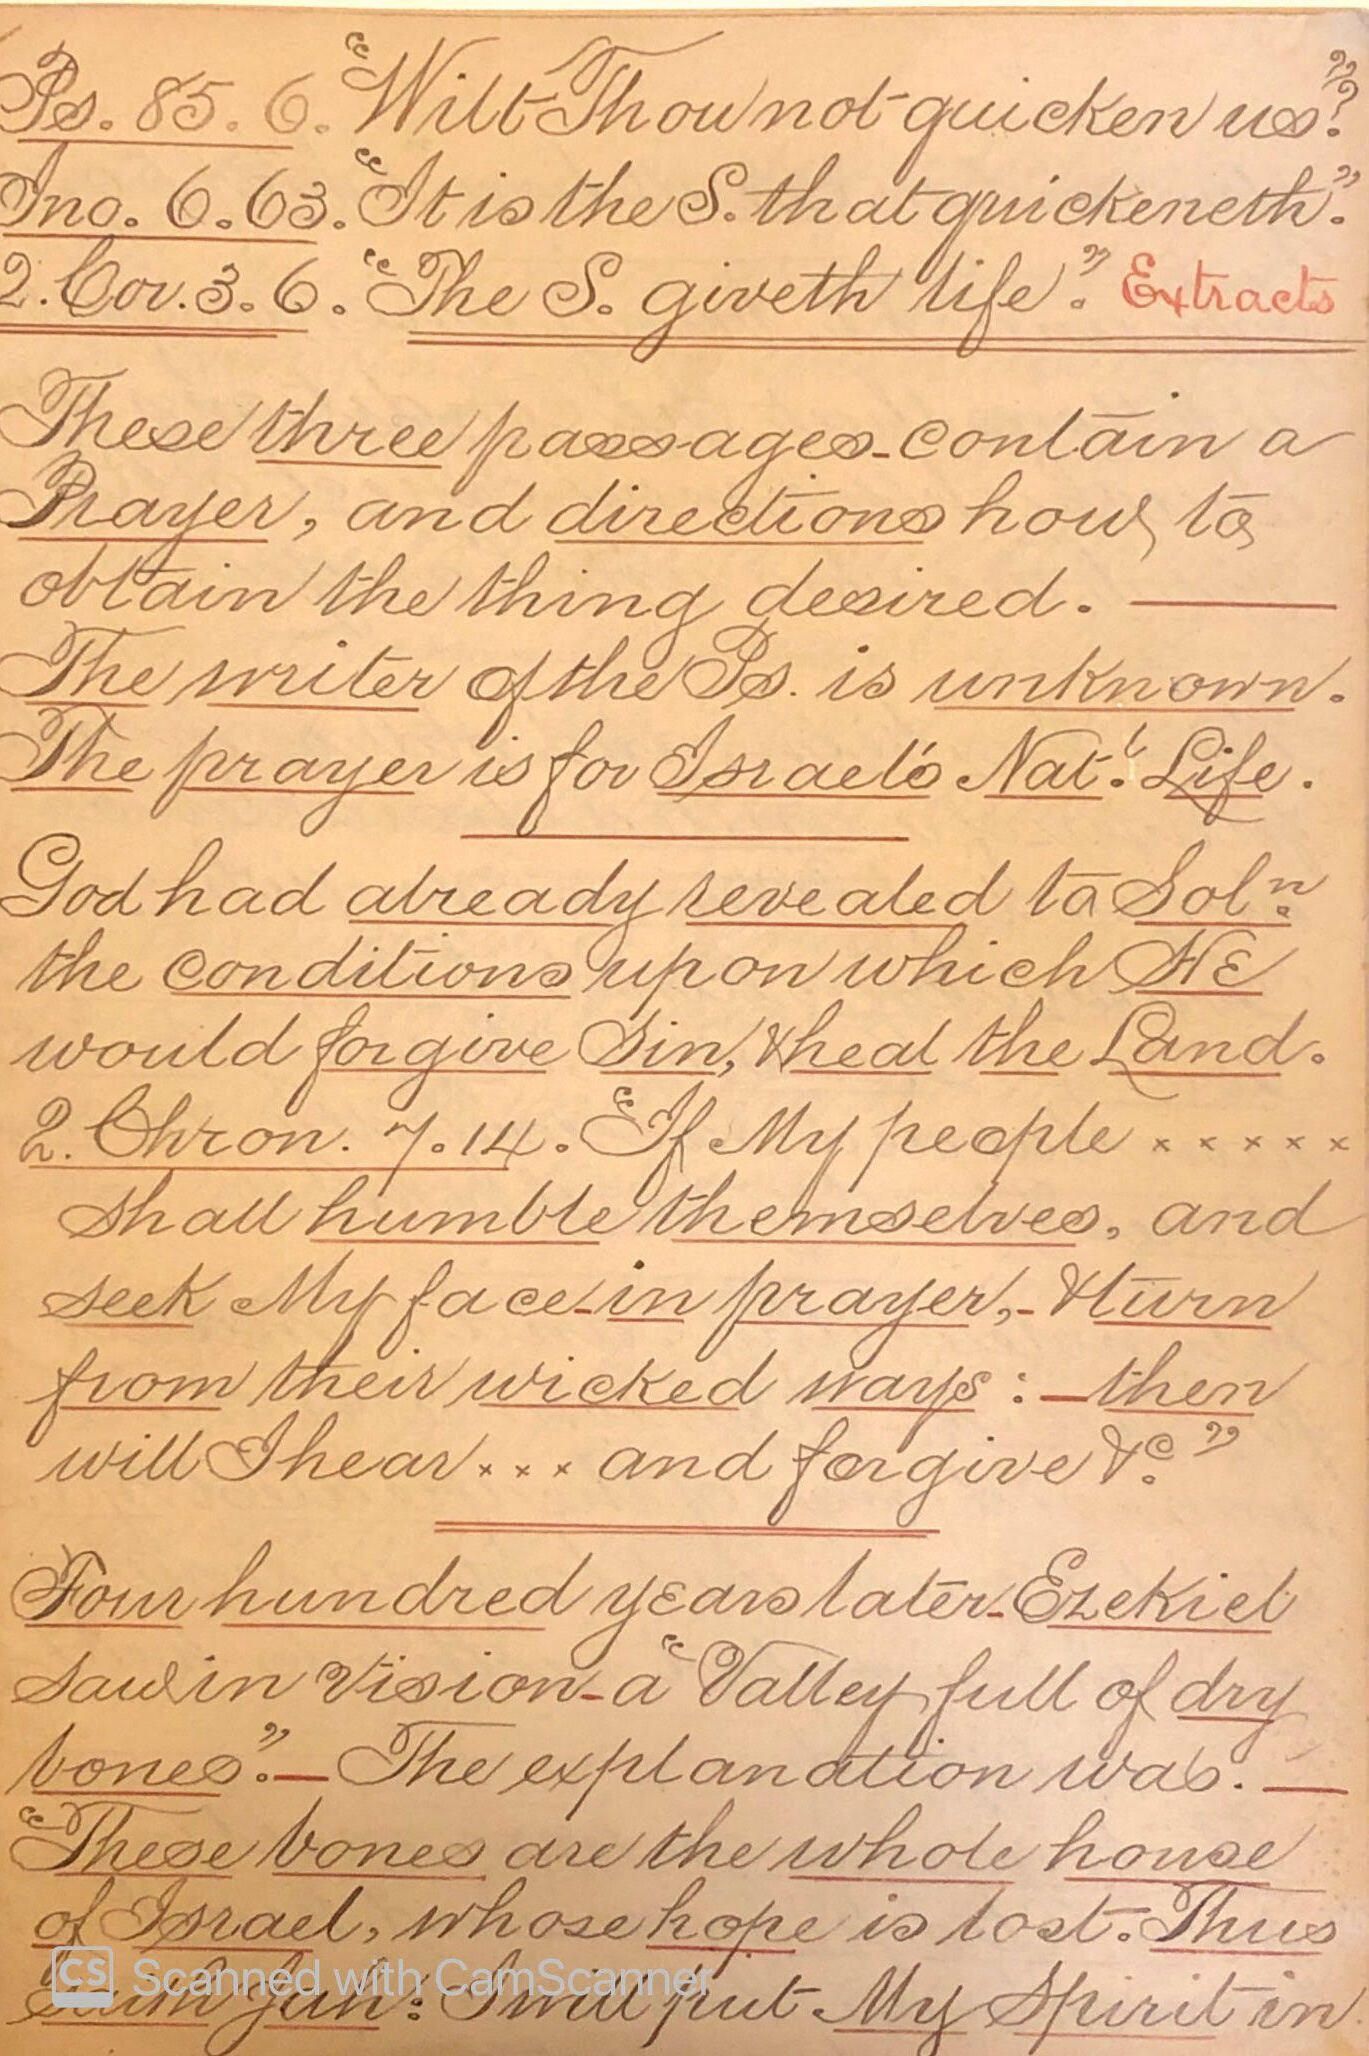 Ps. 85. 6. "Wilt Thou not quicken us?"
Jno. 6. 63. "It is the S. that quickeneth."
2. Cor. 3. 6. "The S. giveth life". Extracts
These three passages - contain a
Prayer, and directions how, to,
obtain the thing desired. —
The writer of the Ps. is unknown.
The prayer is for Israel's Nat.l Life.
God had already revealed to Sol.n
the conditions upon which HE
would forgive Sin, & heal the Land.
2. Chron. 7. 14. "If My people x x x x x
shall humble themselves, and
seek My face - in prayer, - & turn
from their wicked ways : — then
will I hear x x x and forgive &c."
Four hundred years later - Ezekiel
saw in vision - a "Valley full of dry
bones". — The explanation was. —
"These bones are the whole house
of Israel, whose hope is lost. Thus
saith Jah: I will put My Spirit in
CS Scanned with CamScanner